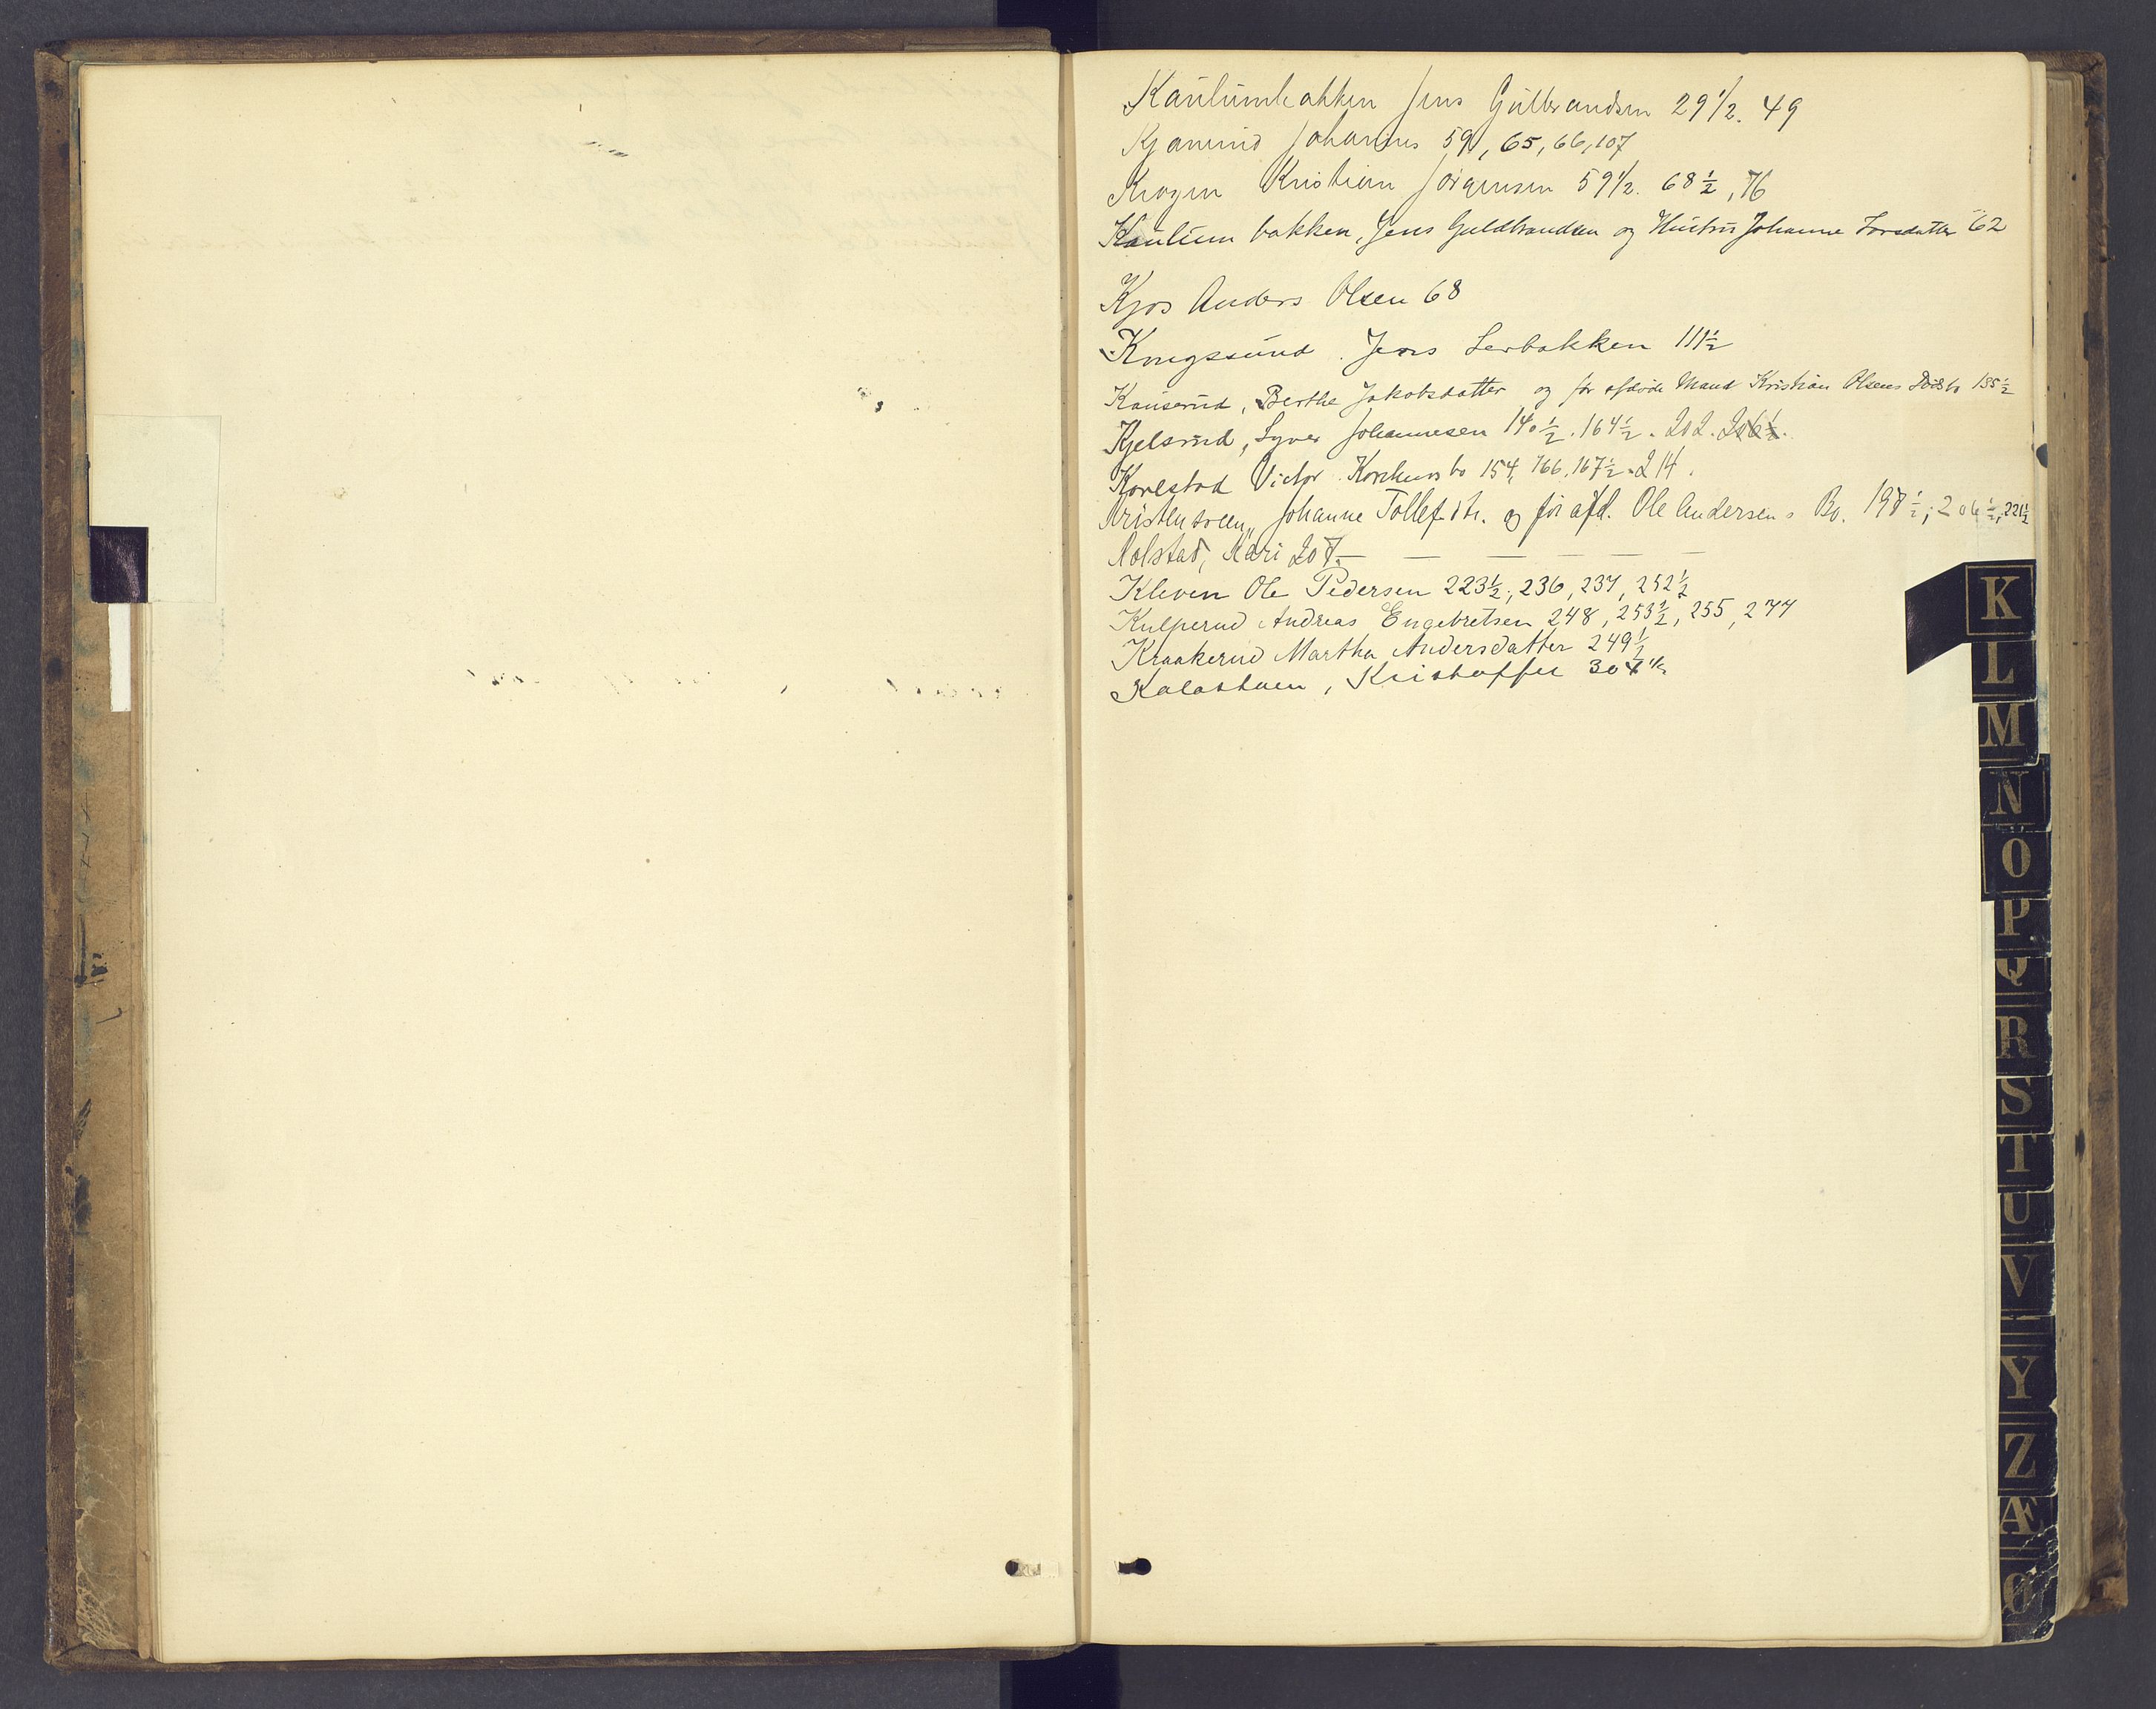 Kaulumbakken Jens Gulbrandsen 29 1/2. 49
Kjamrud Johannes 59, 65, 66, 107
Krogen Kristian Jörgensen 59 1/2. 68 1/2, 76
Kaulum bakken, Jens Guldbrandsen og Hustru Johanne Larsdatter 62
Kjos Anders Olsen 68
Kongssund. Jens Lerbakken 111 1/2
Kauserud, Berthe Jakobsdatter og før afdøde Mand Kristian Olsens Dødsbo 135 1/2
Kjelsrud, Syver Johannesen 140 1/2. 164 1/2. 202. 206 1/2.
Karlstad Victor Konkursbo 154, 166. 167 1/2. 214.
Kristensveen, Johanne Tollefdtr. og før afd. Ole Andersens Bo. 197 1/2, 206 1/2, 221 1/2
Kolstad, Kari 207. — — — — — —
Kleven Ole Pedersen 223 1/2, 236, 237, 252 1/2
Kulperud Andreas Engebretsen 248, 253 1/2, 255, 277
Kraakerud Martha Andersdatter 249 1/2
Kalastuen, Kristoffer 304 1/2
K
L
M
N
O
P
Q
R
S
T
U
V
Y
Z
Æ
Ø